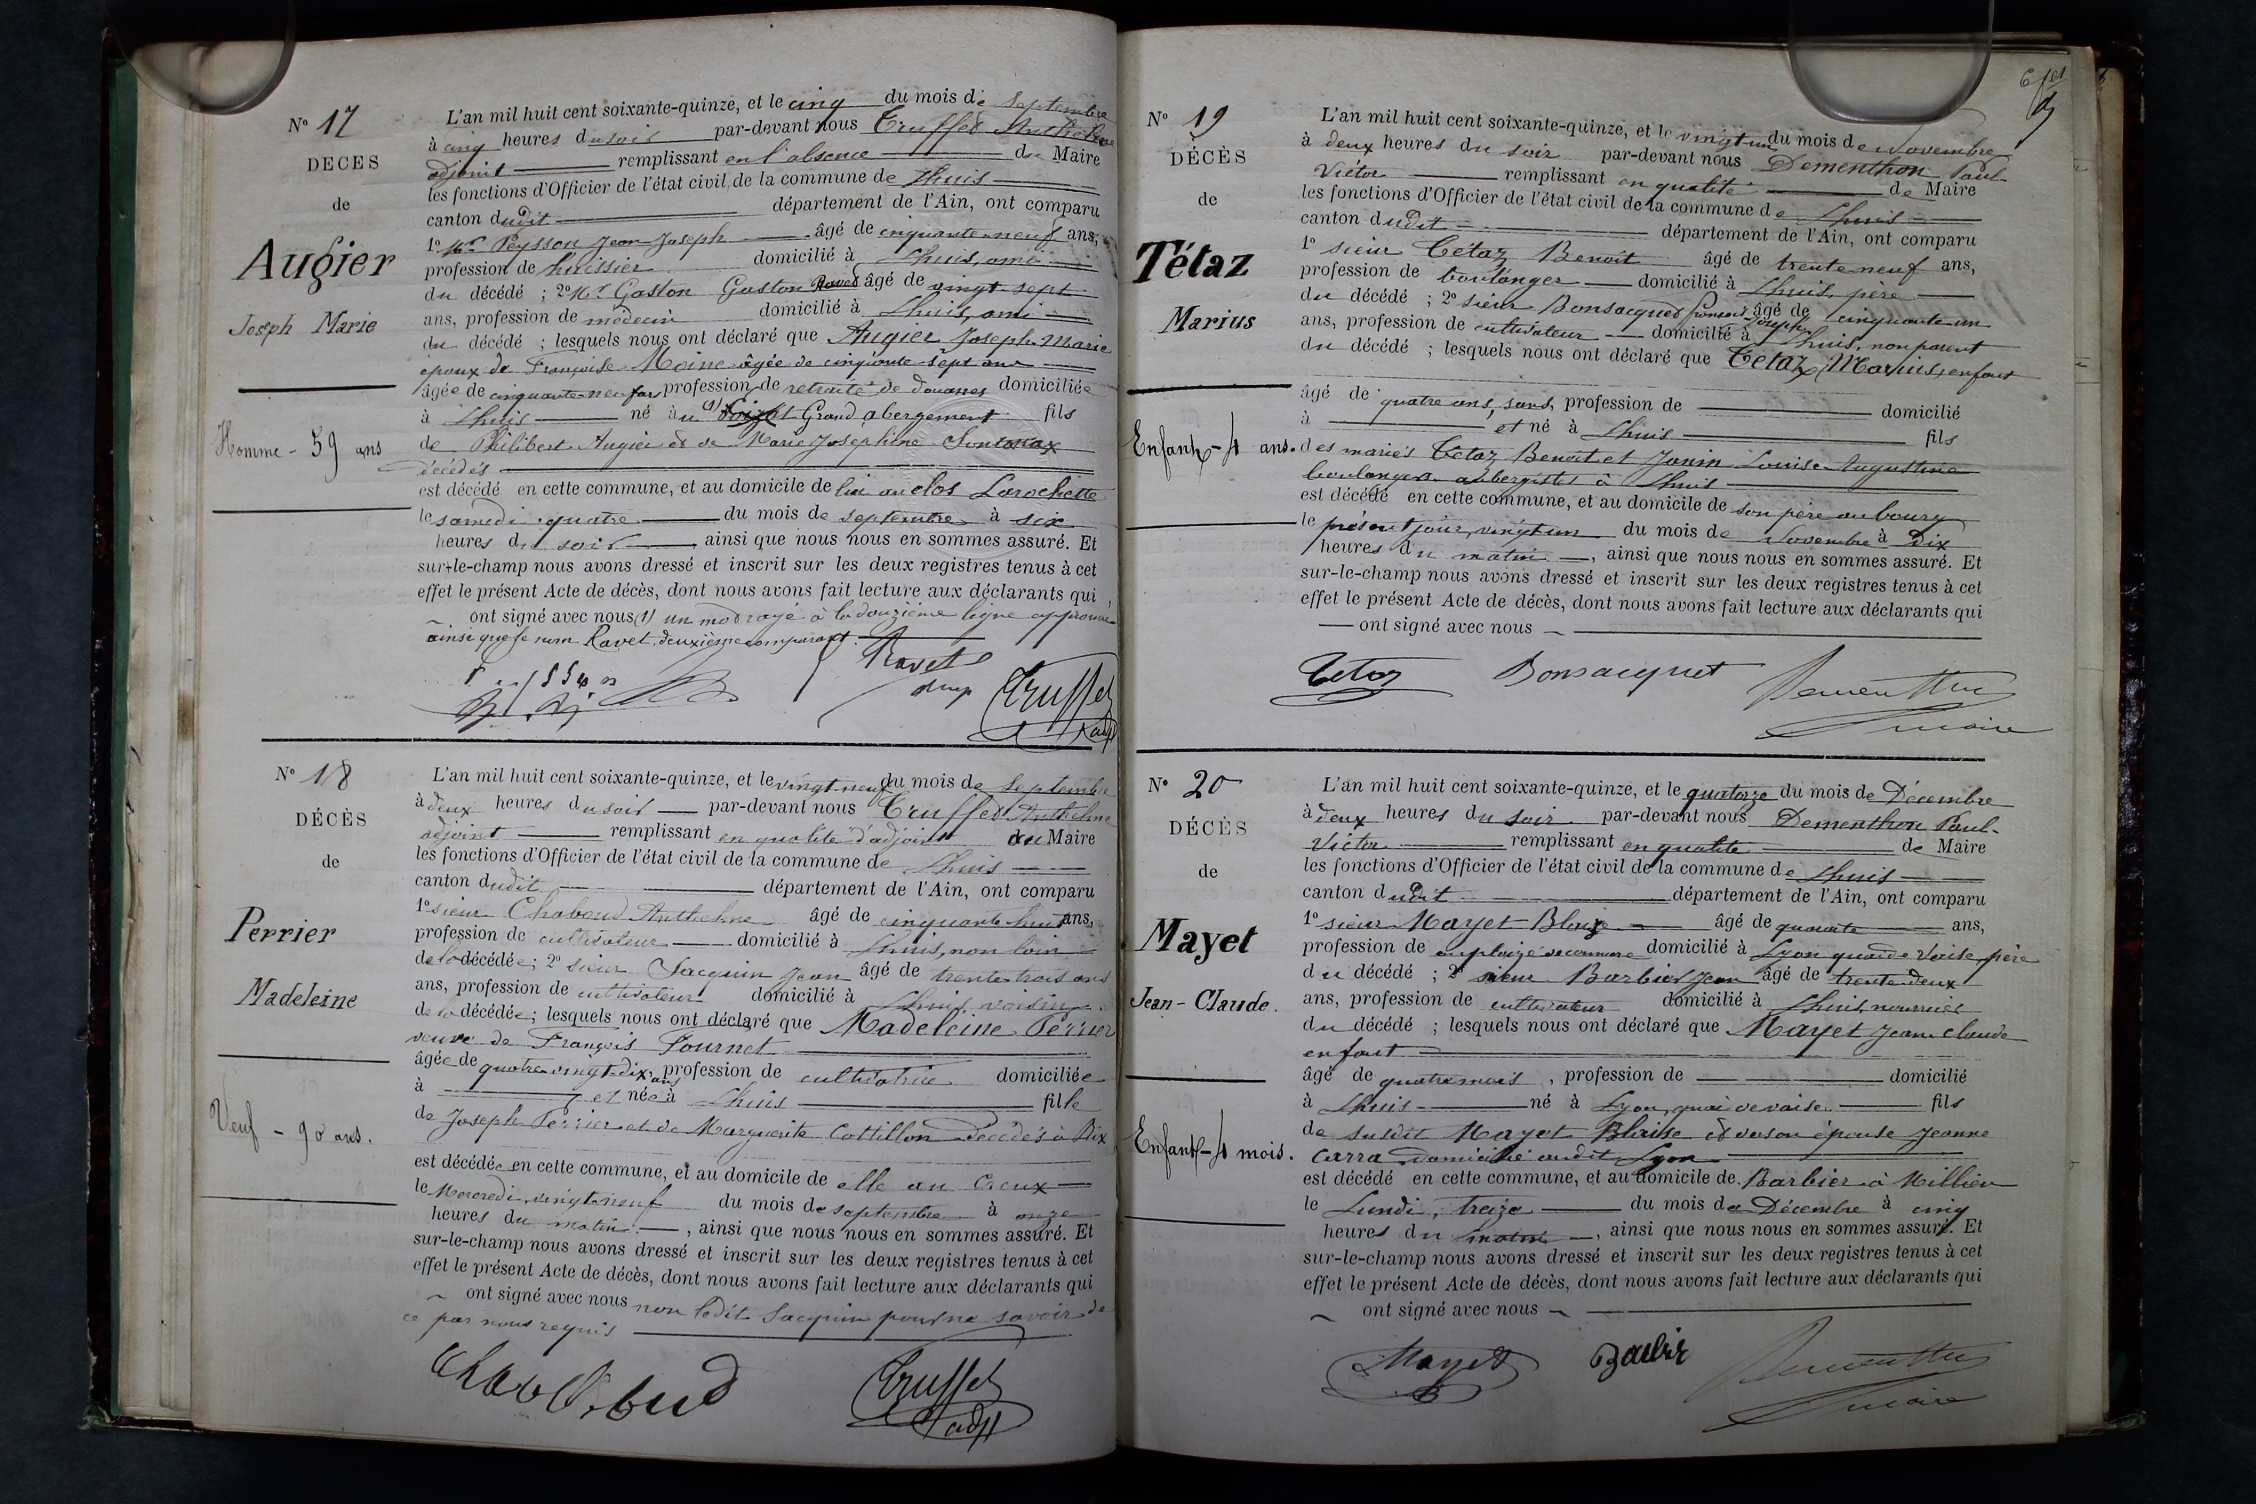 N° 17
DECES
de
Augier
Joseph Marie
Homme - 59 ans
L'an mil huit cent soixante-quinze, et le cinq du mois de Septembre
à cinq heures du soir par-devant nous Truffet Anthelme
adjoint remplissant en l'absence du Maire
les fonctions d'Officier de l'état civil de la commune de Lhuis
canton dudit département de l'Ain, ont comparu
1° Mr Peysson Jean Joseph âgé de cinquante-neuf ans,
profession de huissier domicilié à Lhuis, ami
du décédé ; 2° Mr Gaston Gaston Ravet âgé de vingt-sept
ans, profession de médecin domicilié à Lhuis, ami
du décédé ; lesquels nous ont déclaré que Augier Joseph-Marie
époux de Françoise Moine âgée de cinquante-sept ans
âgé de cinquante-neuf ans profession de retraité de douanes domicilié
à Lhuis né au (1) Grand abergement fils
de Philibert Augier et de Marie Josephine
décédés
est décédé en cette commune, et au domicile de lui au clos Larochette
le samedi quatre du mois de septembre à six
heures du soir ainsi que nous nous en sommes assuré. Et
sur-le-champ nous avons dressé et inscrit sur les deux registres tenus à cet
effet le présent Acte de décès, dont nous avons fait lecture aux déclarants qui
ont signé avec nous (1) un mot rayé à la douzième ligne approuvé
ainsi que le nom Ravet, deuxième comparant.
Ravet
Truffet
adjt
N° 18
DÉCÈS
de
Perrier
Madeleine
Veuf - 90 ans.
L'an mil huit cent soixante-quinze, et le vingt-neuf du mois de Septembre
à deux heures du soir par-devant nous Truffet Anthelme
adjoint remplissant en qualité d'adjoint du Maire
les fonctions d'Officier de l'état civil de la commune de Lhuis
canton dudit département de l'Ain, ont comparu
1° sieur Chaboud Anthelme âgé de cinquante huit ans,
profession de cultivateur domicilié à Lhuis, non loin
de la décédée; 2° sieur Jacquin Jean âgé de trente trois ans
ans, profession de cultivateur domicilié à Lhuis, voisin
de la décédée; lesquels nous ont déclaré que Madeleine Perrier
veuve de François Fournet
âgée de quatre-vingt-dix ans profession de cultivatrice domiciliée
à et née à Lhuis fille
de Joseph Perrier et de Marguerite Cottillon décédés à Dix
est décédée en cette commune, et au domicile de elle au Creux
le Mercredi vingt-neuf du mois de septembre à onze
heures du matin , ainsi que nous nous en sommes assuré. Et
sur-le-champ nous avons dressé et inscrit sur les deux registres tenus à cet
effet le présent Acte de décès, dont nous avons fait lecture aux déclarants qui
ont signé avec nous non ledit Jacquin pour ne savoir de
ce par nous requis
Chaboud
Truffet
adjt
N° 19
DÉCÈS
de
Tétaz
Marius
Enfant - 4 ans.
L'an mil huit cent soixante-quinze, et le vingt un du mois de Novembre
à deux heures du soir par-devant nous Dementhon Paul
Victor remplissant en qualité de Maire
les fonctions d'Officier de l'état civil de la commune de Lhuis
canton dudit département de l'Ain, ont comparu
1° sieur Tétaz Benoit âgé de trente neuf ans,
profession de boulanger domicilié à Lhuis, père
du décédé ; 2° sieur Bonsacquet Joseph âgé de cinquante un
ans, profession de cultivateur domicilié à Lhuis, non parent
du décédé ; lesquels nous ont déclaré que Tetaz Marius, enfant
âgé de quatre ans, sans, profession de domicilié
à et né à Lhuis fils
des mariés Tetaz Benoit et Janin Louise Augustine
boulangers aubergistes à Lhuis
est décédé en cette commune, et au domicile de son père au bourg
le présent jour, vingt un du mois de Novembre à Dix
heures du matin , ainsi que nous nous en sommes assuré. Et
sur-le-champ nous avons dressé et inscrit sur les deux registres tenus à cet
effet le présent Acte de décès, dont nous avons fait lecture aux déclarants qui
ont signé avec nous
Tetaz Bonsacquet Dementhon
maire
N° 20
DÉCÈS
de
Mayet
Jean-Claude.
Enfant - 4 mois.
L'an mil huit cent soixante-quinze, et le quatorze du mois de Décembre
à deux heures du soir par-devant nous Dementhon Paul-
Victor remplissant en qualité de Maire
les fonctions d'Officier de l'état civil de la commune de Lhuis
canton dudit département de l'Ain, ont comparu
1° sieur Mayet Blaise âgé de quarante ans,
profession de employé domicilié à Lyon quai de Vaise, père
du décédé ; 2° sieur Barbier Jean âgé de trente deux
ans, profession de cultivateur domicilié à Lhuis, nourricier
du décédé ; lesquels nous ont déclaré que Mayet Jean Claude
enfant
âgé de quatre mois , profession de domicilié
à Lhuis né à Lyon, quai de vaise fils
de susdit Mayet Blaise et de son épouse Jeanne
Carra domicilié audit Lyon
est décédé en cette commune, et au domicile de Barbier à Millieu
le Lundi, treize du mois de Décembre à cinq
heures du matin , ainsi que nous nous en sommes assuré. Et
sur-le-champ nous avons dressé et inscrit sur les deux registres tenus à cet
effet le présent Acte de décès, dont nous avons fait lecture aux déclarants qui
ont signé avec nous
Mayet Barbier Dementhon
maire